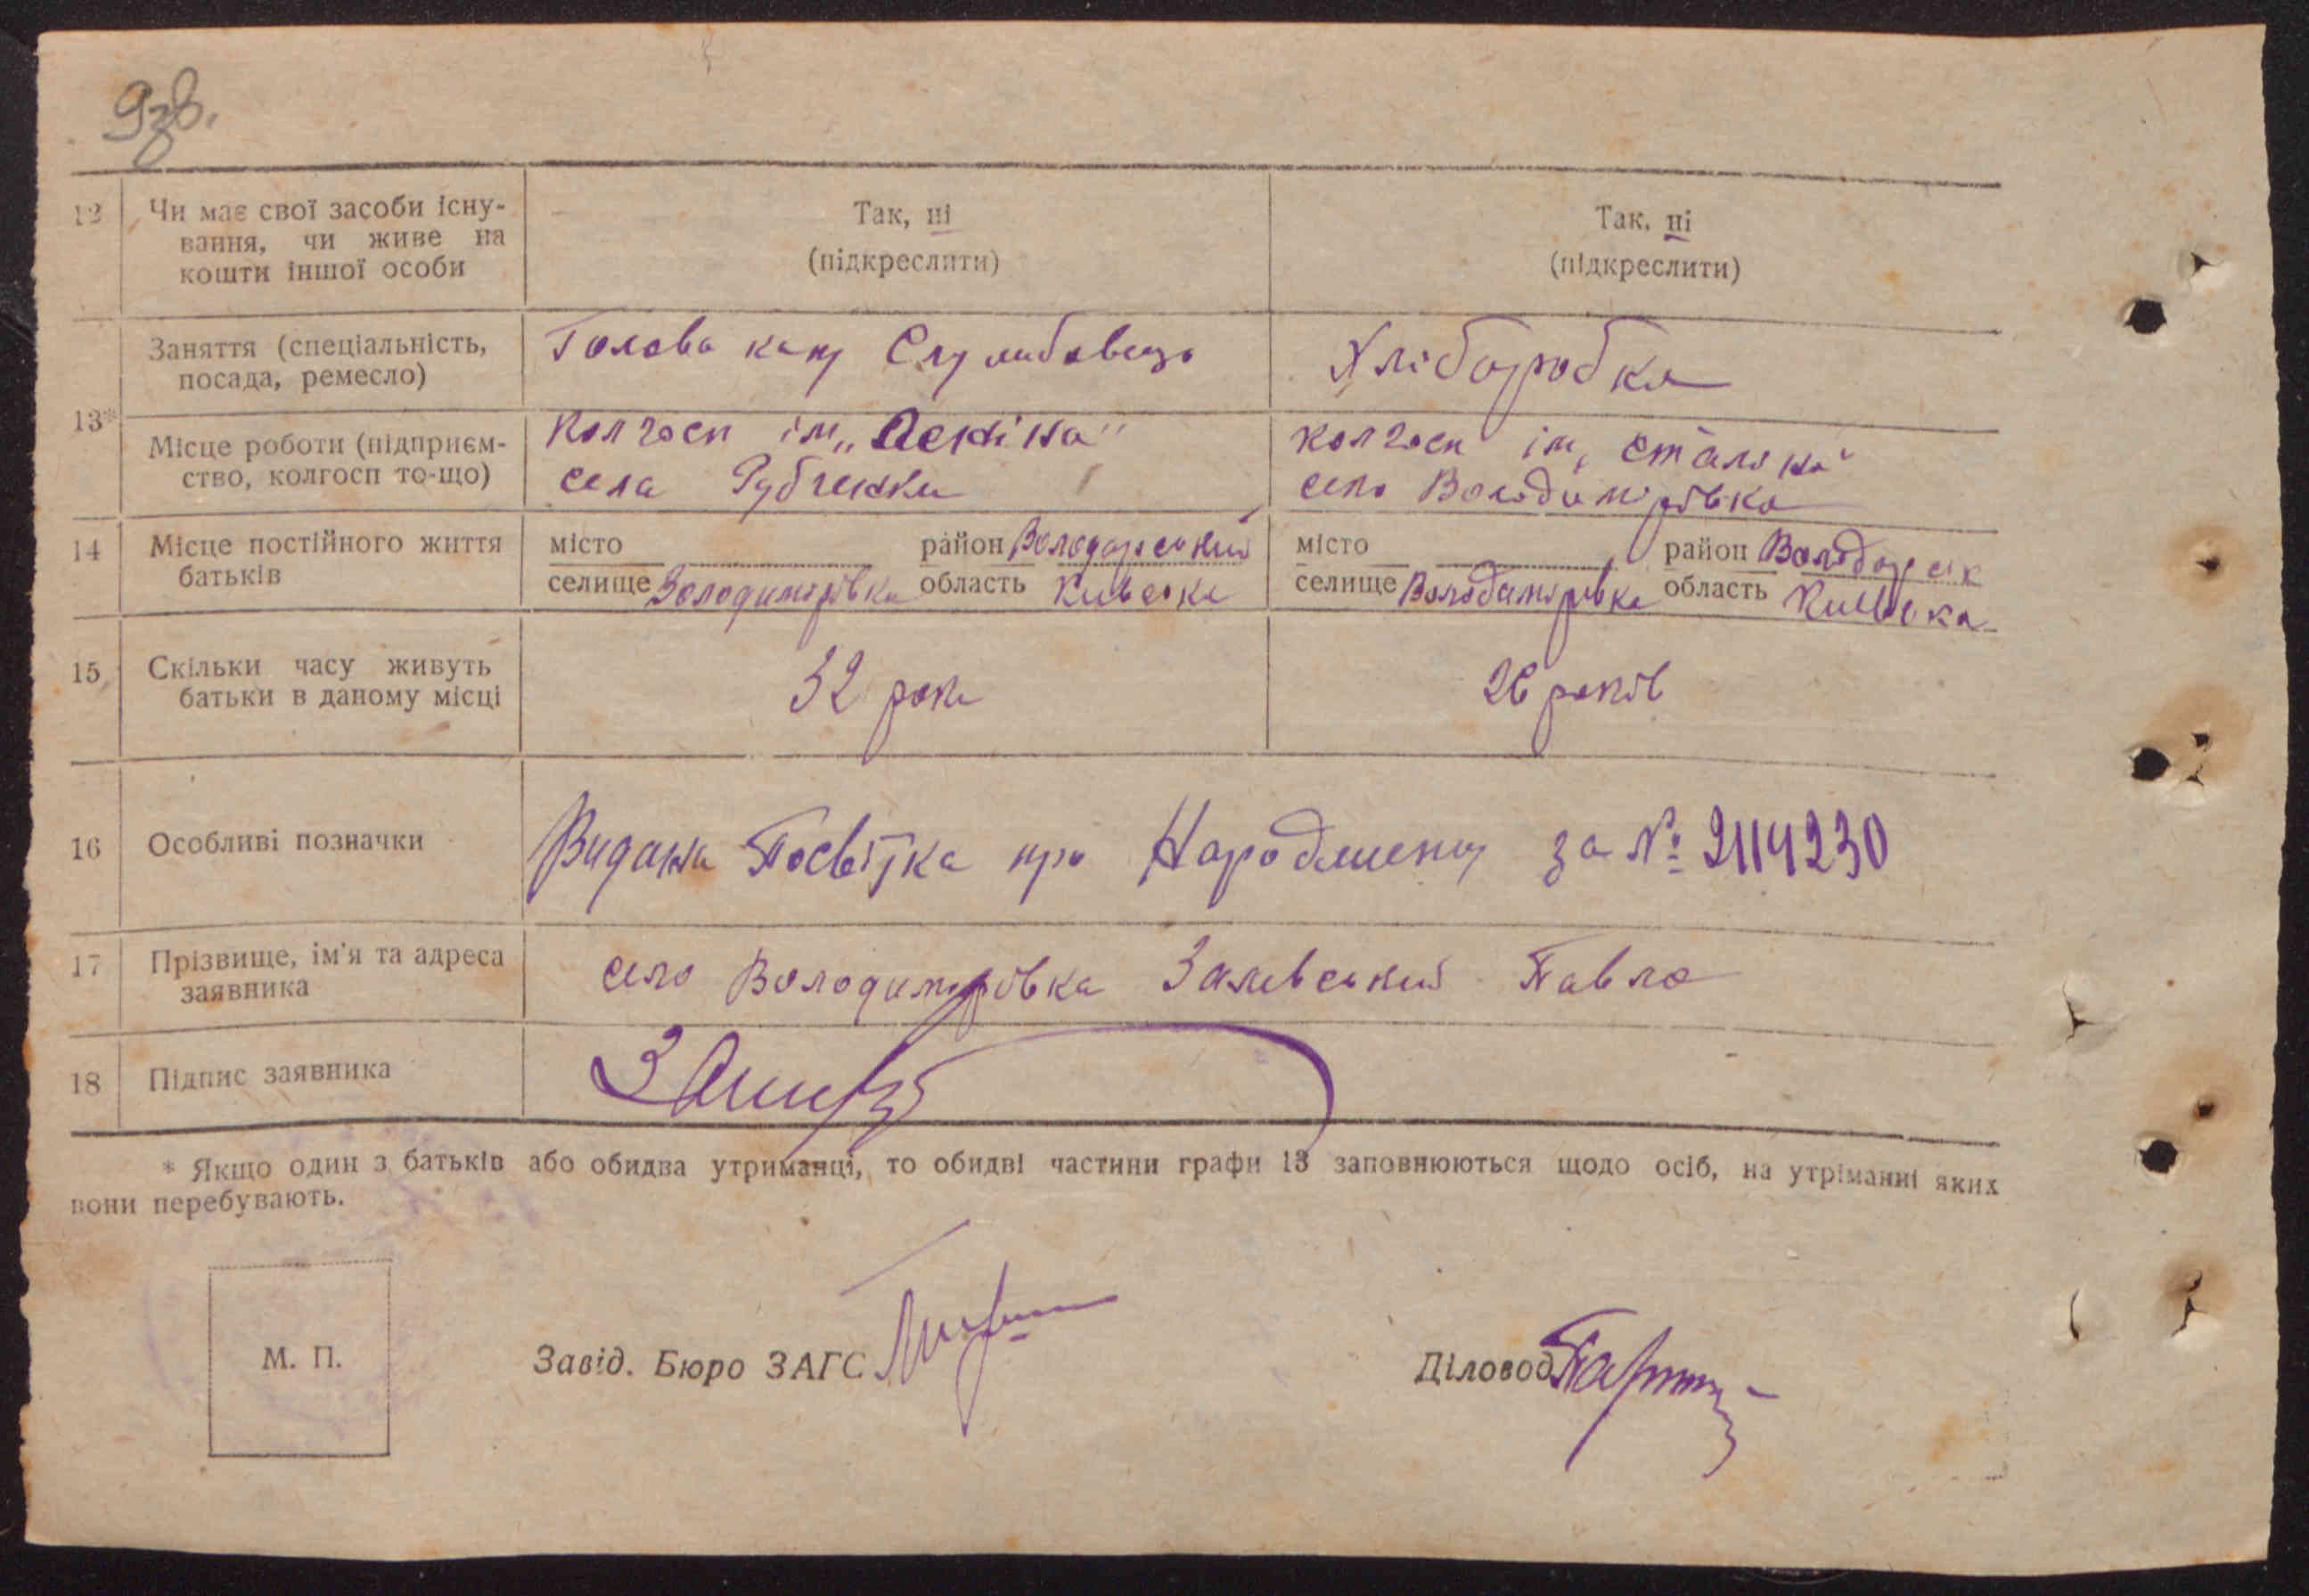 9зв.
12 Чи має свої засоби існу-
вання, чи живе на
кошти іншої особи
Так, ні
(підкреслити)
Так, ні
(підкреслити)
13*
Заняття (спеціальність,
посада, ремесло)
Голова Служибовець
Хліборобка
Місце роботи (підприєм-
ство, колгосп то-що)
Колгосп ім „Леніна"
села Рубченки
колгосп ім, Сталіна"
село Володимирівка
14 Місце постійного життя
батьків
місто район Володарський
селище Володимирівка область Київська
місто район Володарськ
селище Володимирівка область Київська
15 Скільки часу живуть
батьки в даному місці
32 роки
26 років
16 Особливі позначки
Видана Посвітка про Народженя за № 2114230
17 Прізвище, ім'я та адреса
заявника
село Володимирівка Залевський Павло
18 Підпис заявника
* Якщо один з батьків або обидва утриманці, то обидві частини графи 13 заповнюються щодо осіб, на утріманні яких
вони перебувають.
М. П.
Завід. Бюро ЗАГС
Діловод